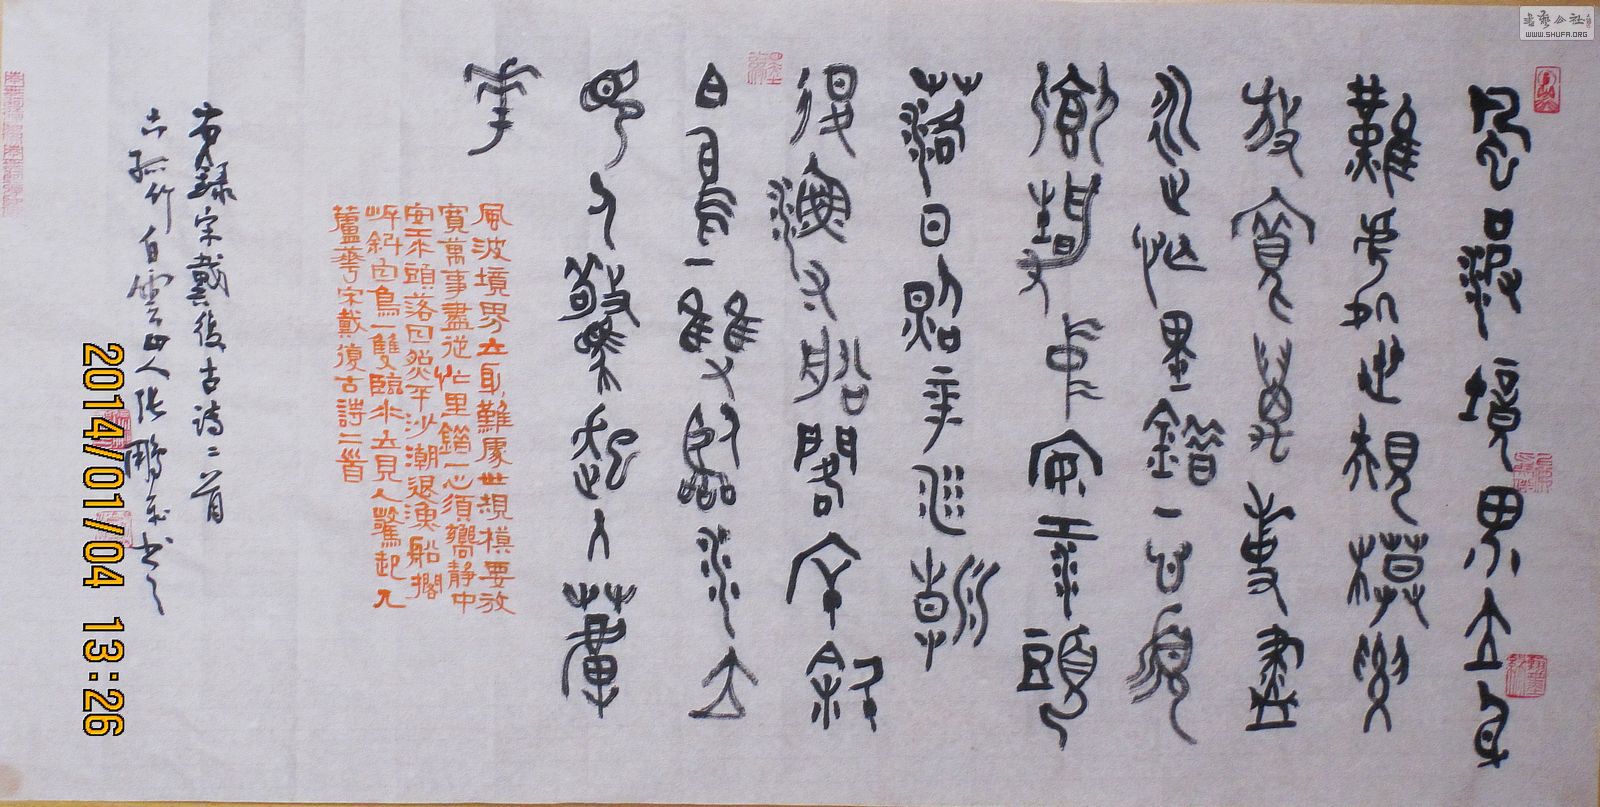 風波境界立身
難處世規模要
放寬萬事盡
從忙里錯一心須
嚮靜中安江頭
落日照平沙潮
退漁船閣岸斜
白鳥一雙臨水立
見人驚起入蘆
華
風波境界立身難處世規模要放
寬萬事盡從忙里錯一心須嚮静中
安江頭落日照平沙潮退漁船擱
岸斜白鳥一雙臨水立見人驚起入
蘆華宋戴復古詩二首
録宋戴復古詩二首
古孤竹白雲山人張鵬書之
2014/01/04 13:26
書藝公社
WWW.SHUFA.ORG